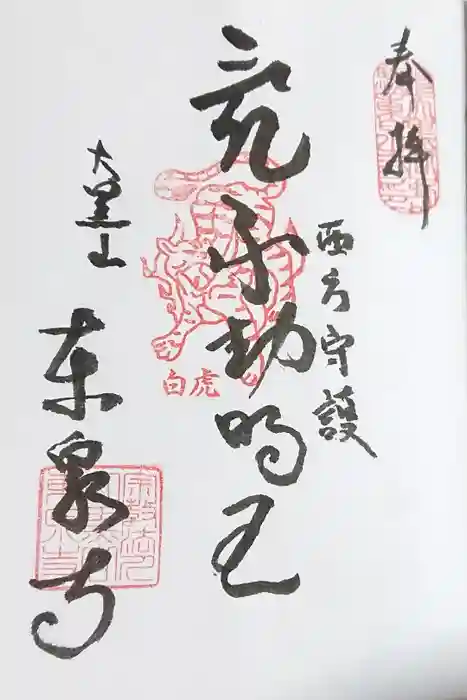 奉拝
西方守護
荒不動明王
白虎
大黒山
東泉寺